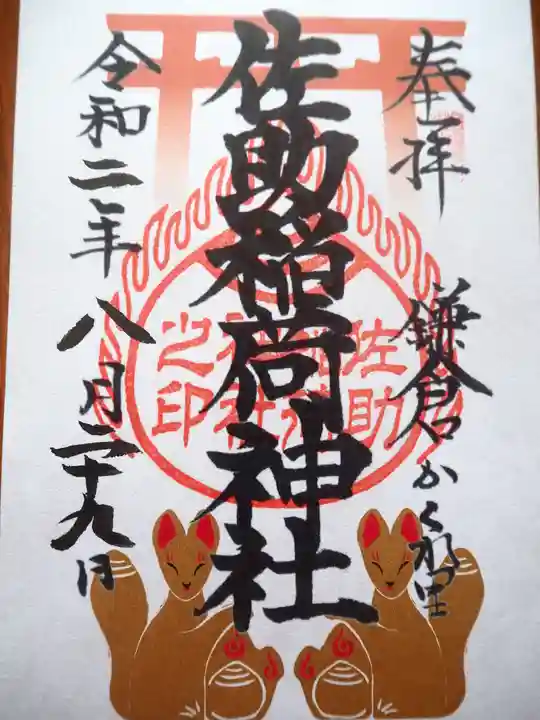 奉拝
鎌倉かくれ里
佐助稲荷神社
佐助
稲荷
神社
之印
令和二年
八月二十九日